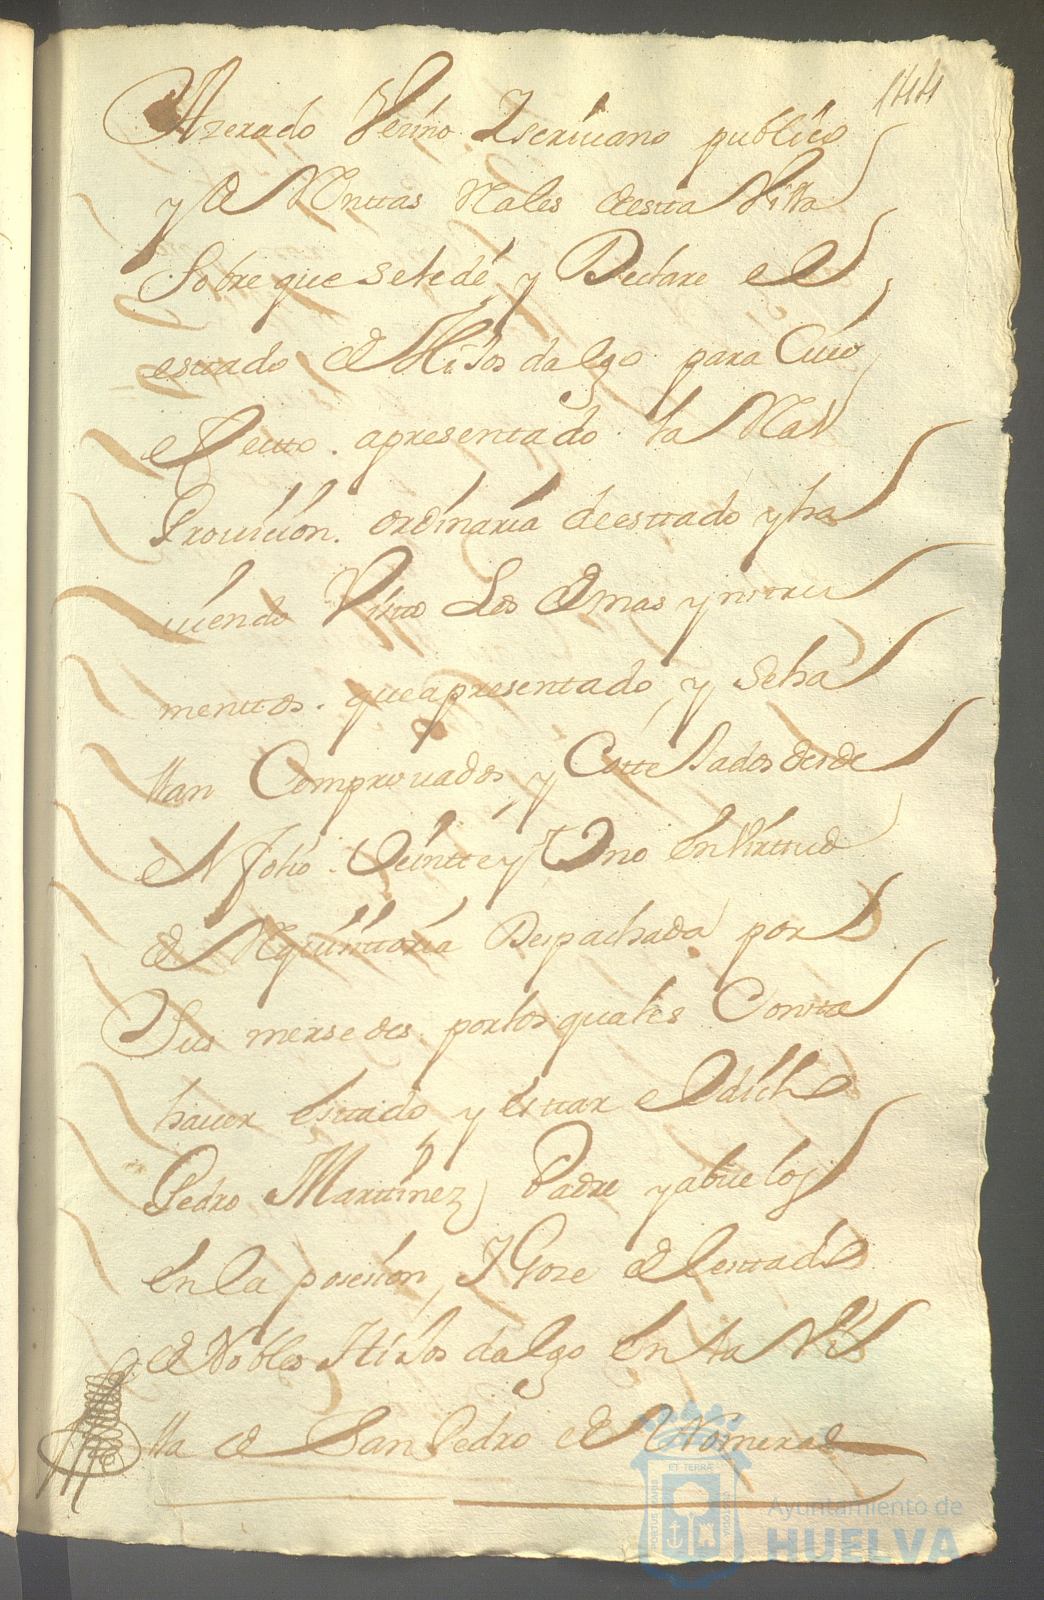 144
Azerado Vezino Escrivano publico
y de Renttas Reales deestta Villa
Sobre que se le dé y Declare el
esttado de Hijos dalgo para Cuio
efectto. apresentado la Real
Provision. ordinaria deesttado y ha
viendo Vistto Los demas ynstru
menttos. que apresentado, y Seha
llan Comprovados, y Cottejados desde
el folio. Veintte y Uno En Virttud
de Requisittoria Despachada por
Sus mersedes. por los quales Consta
haver Esttado, y esttar el dicho
Pedro Marttinez, Padre y abuelos
En la posesion, Y Goze del esttado
de Nobles Hijos dalgo En la Vi
lla de San Pedro de
ET TERRÆ
PORTUS MARIS
CUSTODIA
Ayuntamiento de
HUELVA